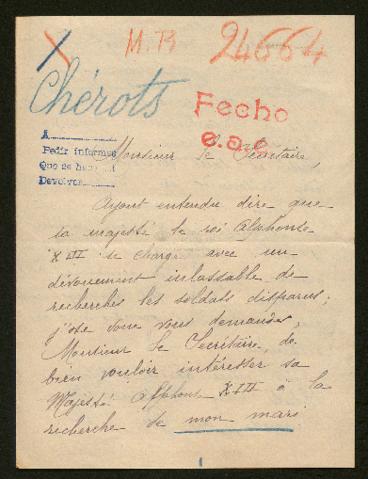 M. B
24664
Chérots
Fecho
e.a.e.
A
Pedir informes
Que se ha
Devolver
Monsieur le Secrétaire,
Ayant entendu dire que
sa majesté le roi Alphonse
XIII se charge avec un
dévouement inlassable de
recherches les soldats disparus;
j'ose donc vous demander,
Monsieur le Secrétaire, de
bien vouloir intéresser sa
Majesté Alphonse XIII à la
recherche de mon mari